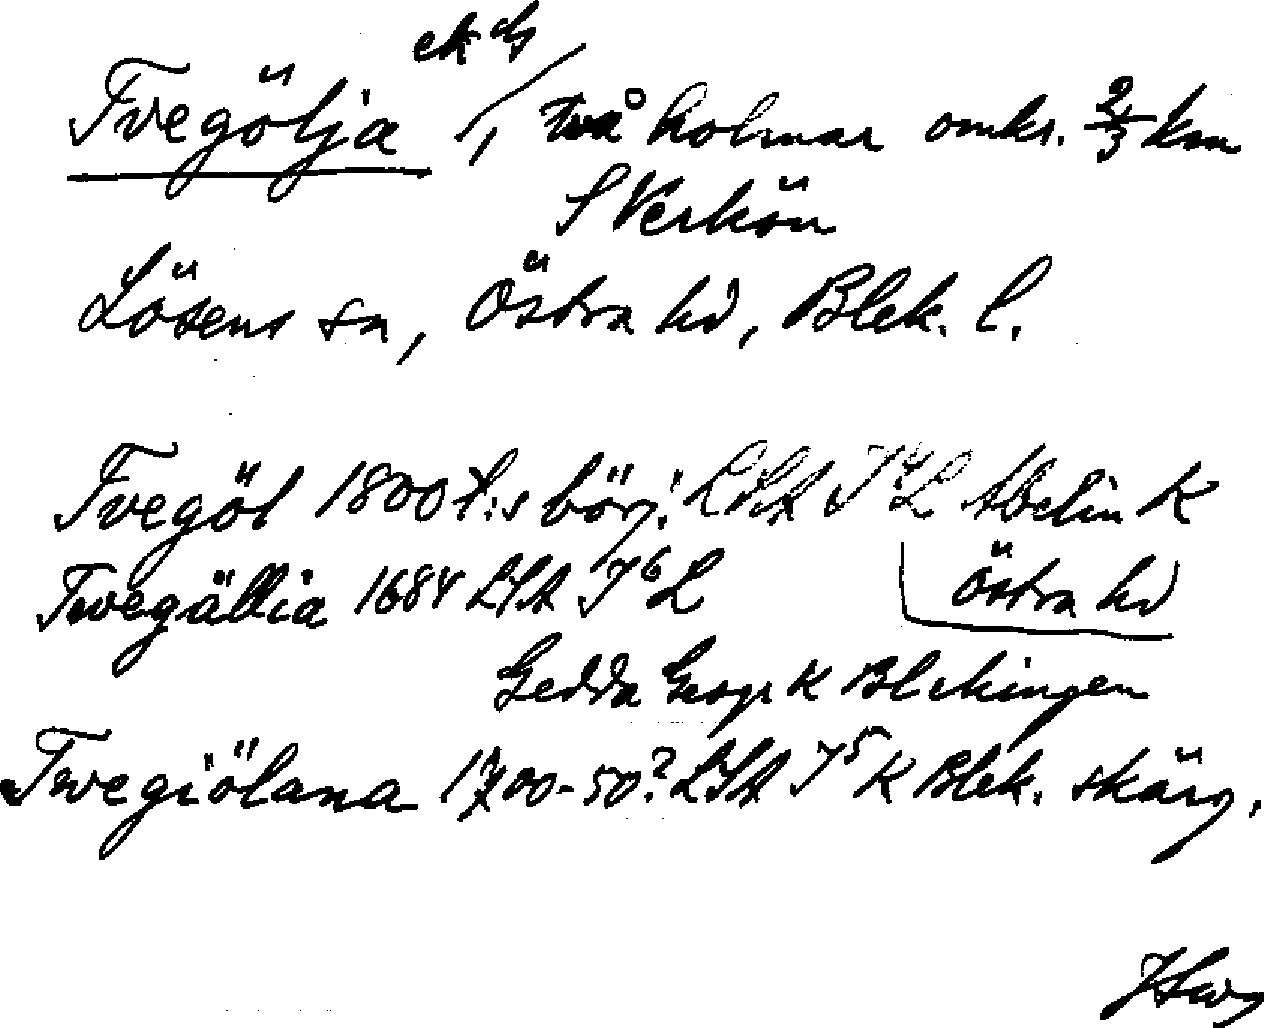 ek ds
Tvegölja, två holmar omkr. 2/3 km
S Verkön
Lösens sn, Östra hd, Blek. l.
Tvegöl 1800 t.:s börj. LSA J⁴L Abelin K
Östra hd
Tvegällia 1684 LSA J⁶L
Gedda Geogr K Blekingen
Tvegiölana 1700-50? LSA J⁵ K Blek. skärg.